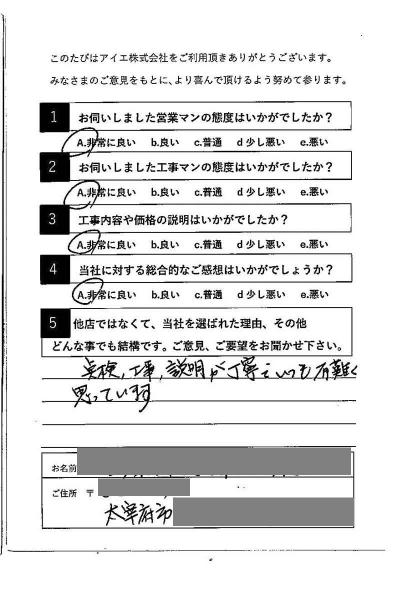 このたびはアイエ株式会社をご利用頂きありがとうございます。
みなさまのご意見をもとに、より喜んで頂けるよう努めて参ります。
1 お伺いしました営業マンの態度はいかがでしたか？
A.非常に良い b.良い c.普通 d少し悪い e.悪い
2 お伺いしました工事マンの態度はいかがでしたか？
A.非常に良い b.良い c.普通 d少し悪い e.悪い
3 工事内容や価格の説明はいかがでしたか？
A.非常に良い b.良い c.普通 d少し悪い e.悪い
4 当社に対する総合的なご感想はいかがでしょうか？
A.非常に良い b.良い c.普通 d少し悪い e.悪い
5 他店ではなくて、当社を選ばれた理由、その他
どんな事でも結構です。ご意見、ご要望をお聞かせ下さい。
点検、工事、説明が丁寧でいつも有難く
思っています
お名前
ご住所 〒
太宰府市